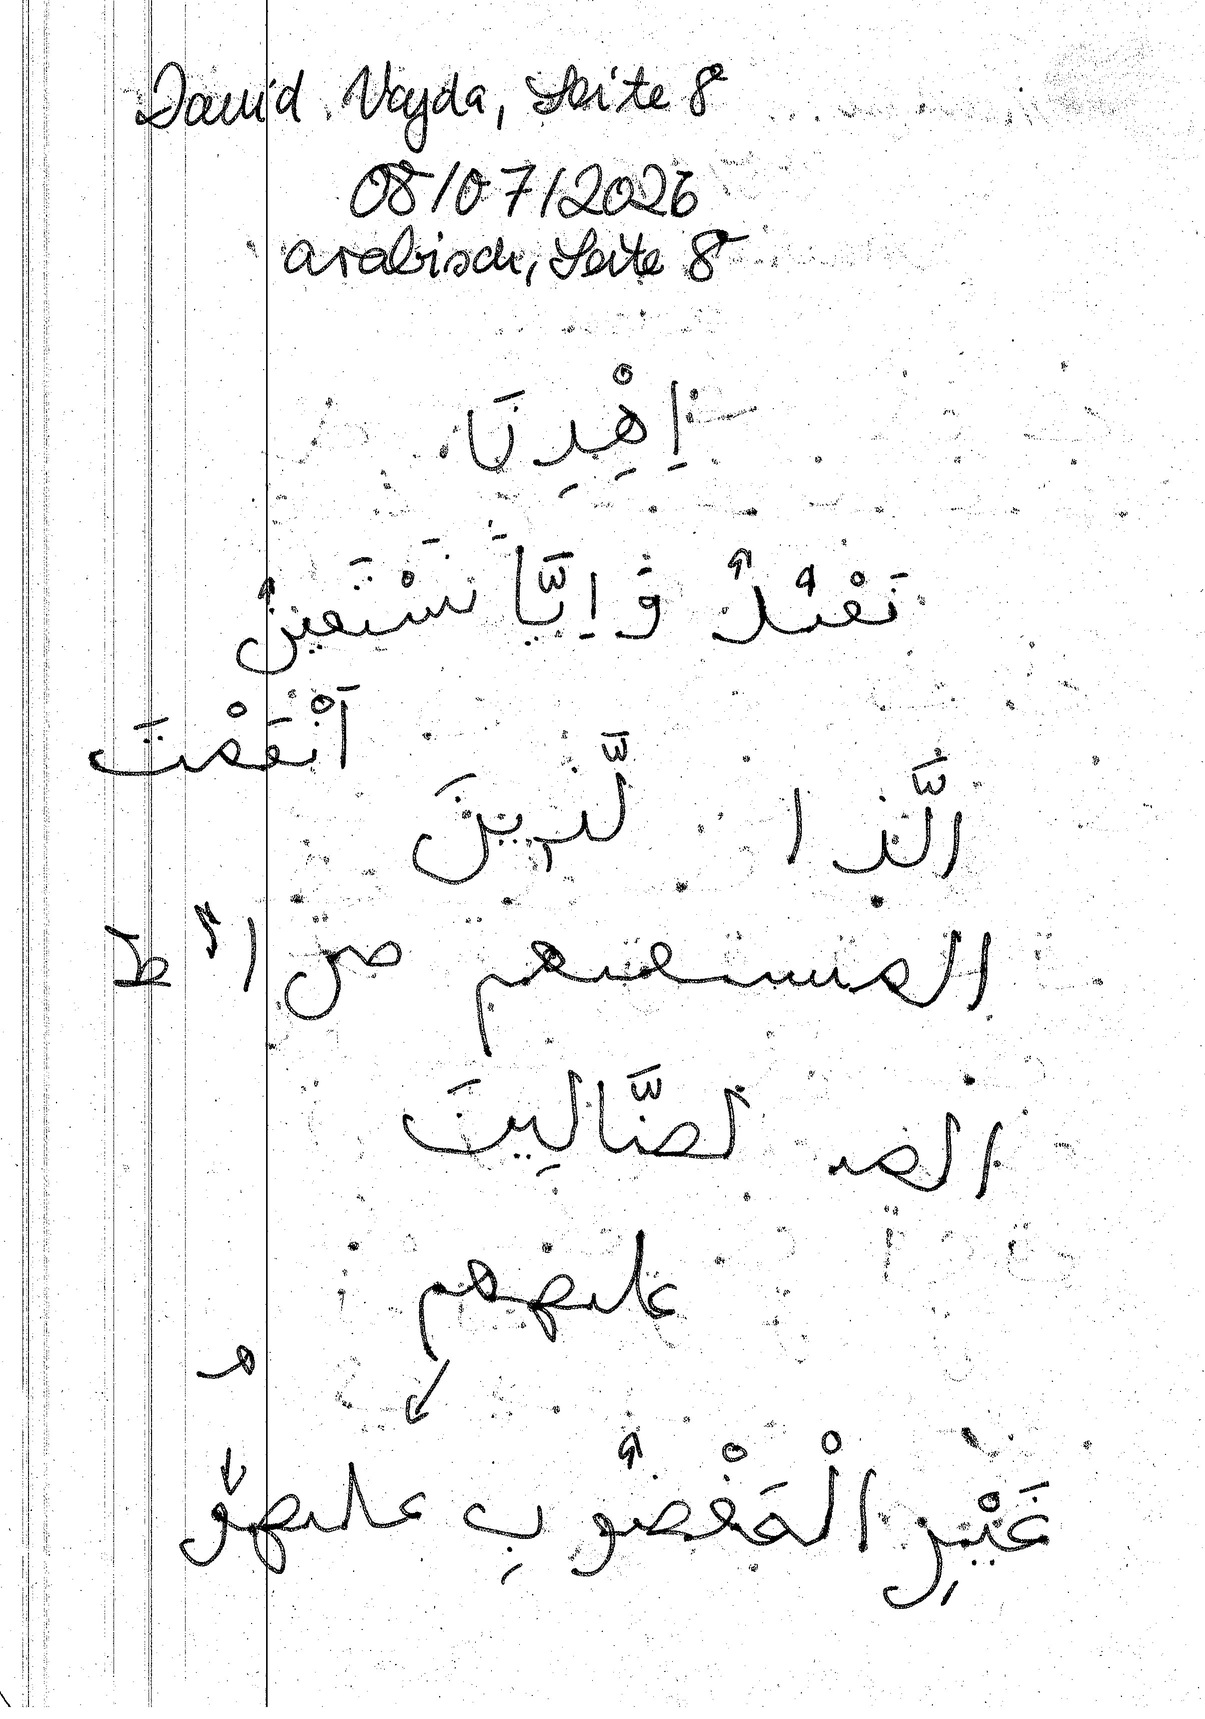 David Vajda, Seite 8
08/07/2026
arabisch, Seite 8
اِهْدِنَا
نَعْبُدُ وَ اِيَّا نَسْتَعِينُ
اَنْعَمْتَ
الَّذ ا لَّذِينَ
المستقيم صر ا ط
المد لضَّالِينَ
عليهم
م
غَيْرِ الْمَغْضُوبِ عليهم